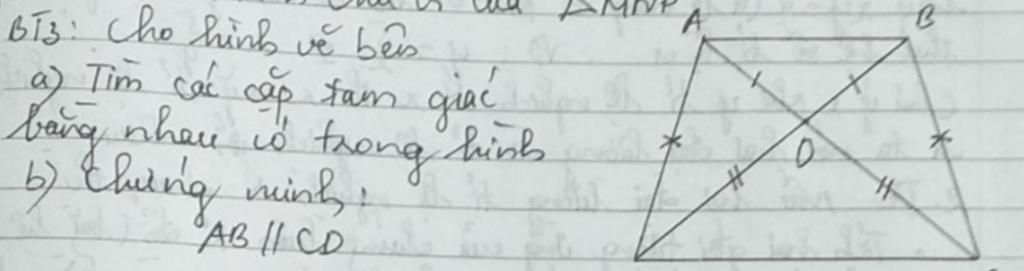 ΔMNP
BT3: Cho hình vẽ bên
a) Tìm các cặp tam giác
bằng nhau có trong hình
b) Chứng minh:
AB // CD
A B
O